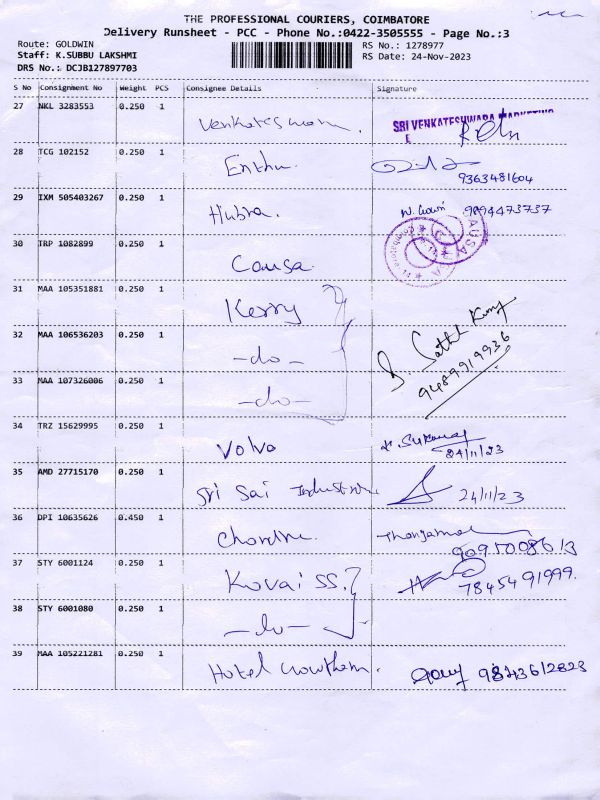 THE PROFESSIONAL COURIERS, COIMBATORE
Delivery Runsheet - PCC - Phone No.:0422-3505555 - Page No.:3
Route: GOLDWIN RS No.: 1278977
Staff: K.SUBBU LAKSHMI RS Date: 24-Nov-2023
DRS No.: DCJB127897703
S No Consignment No Weight PCS Consignee Details Signature
27 NKL 3283553 0.250 1 SRI VENKATESHWARA MARKETING
28 TCG 102152 0.250 1 Enthu. 9363481604
29 IXM 505403267 0.250 1 Hubra. 9894473737
30 TRP 1082899 0.250 1 Causa
31 MAA 105351881 0.250 1 Kerry
32 MAA 106536203 0.250 1 -do- S. Sathh Kumar
33 MAA 107326006 0.250 1 -do- 9489919936
34 TRZ 15629995 0.250 1 Volvo 24/11/23
35 AMD 27715170 0.250 1 Sri Sai Industries 24/11/23
36 DPI 10635626 0.450 1
37 STY 6001124 0.250 1 Kovai SS. 7845491999.
38 STY 6001080 0.250 1 -do-
39 MAA 105221281 0.250 1 Hotel Gowtham. 9843612823